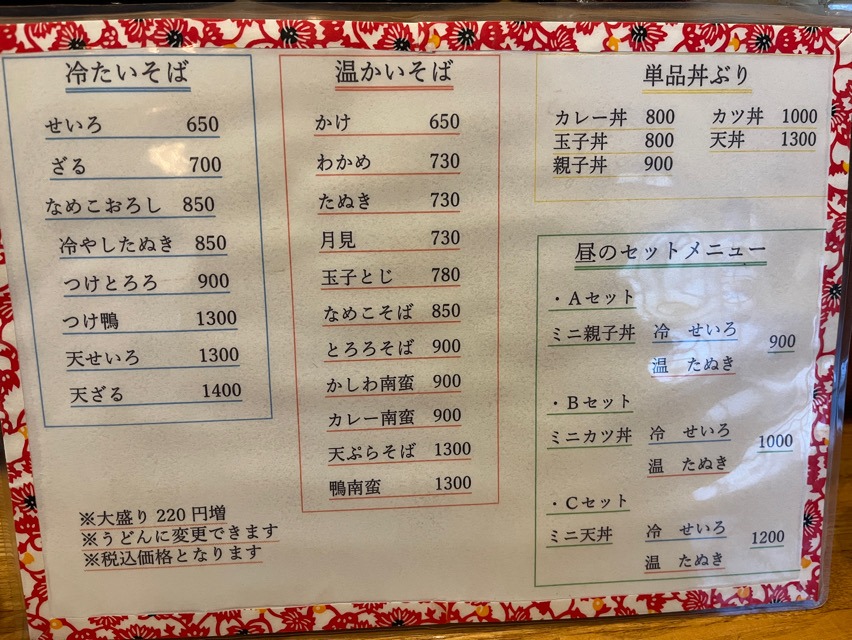 冷たいそば
せいろ 650
ざる 700
なめこおろし 850
冷やしたぬき 850
つけとろろ 900
つけ鴨 1300
天せいろ 1300
天ざる 1400
※大盛り 220 円増
※うどんに変更できます
※税込価格となります
温かいそば
かけ 650
わかめ 730
たぬき 730
月見 730
玉子とじ 780
なめこそば 850
とろろそば 900
かしわ南蛮 900
カレー南蛮 900
天ぷらそば 1300
鴨南蛮 1300
単品丼ぶり
カレー丼 800 カツ丼 1000
玉子丼 800 天丼 1300
親子丼 900
昼のセットメニュー
・Aセット
ミニ親子丼 冷 せいろ 900
温 たぬき
・Bセット
ミニカツ丼 冷 せいろ 1000
温 たぬき
・Cセット
ミニ天丼 冷 せいろ 1200
温 たぬき